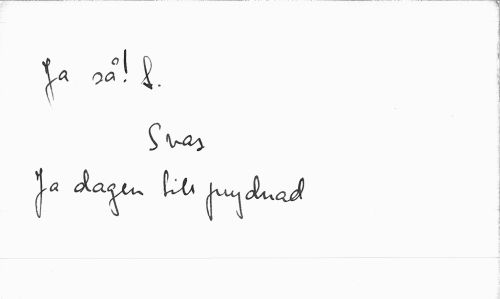 Ja så! S.
Svar
Ja dagen till prydnad